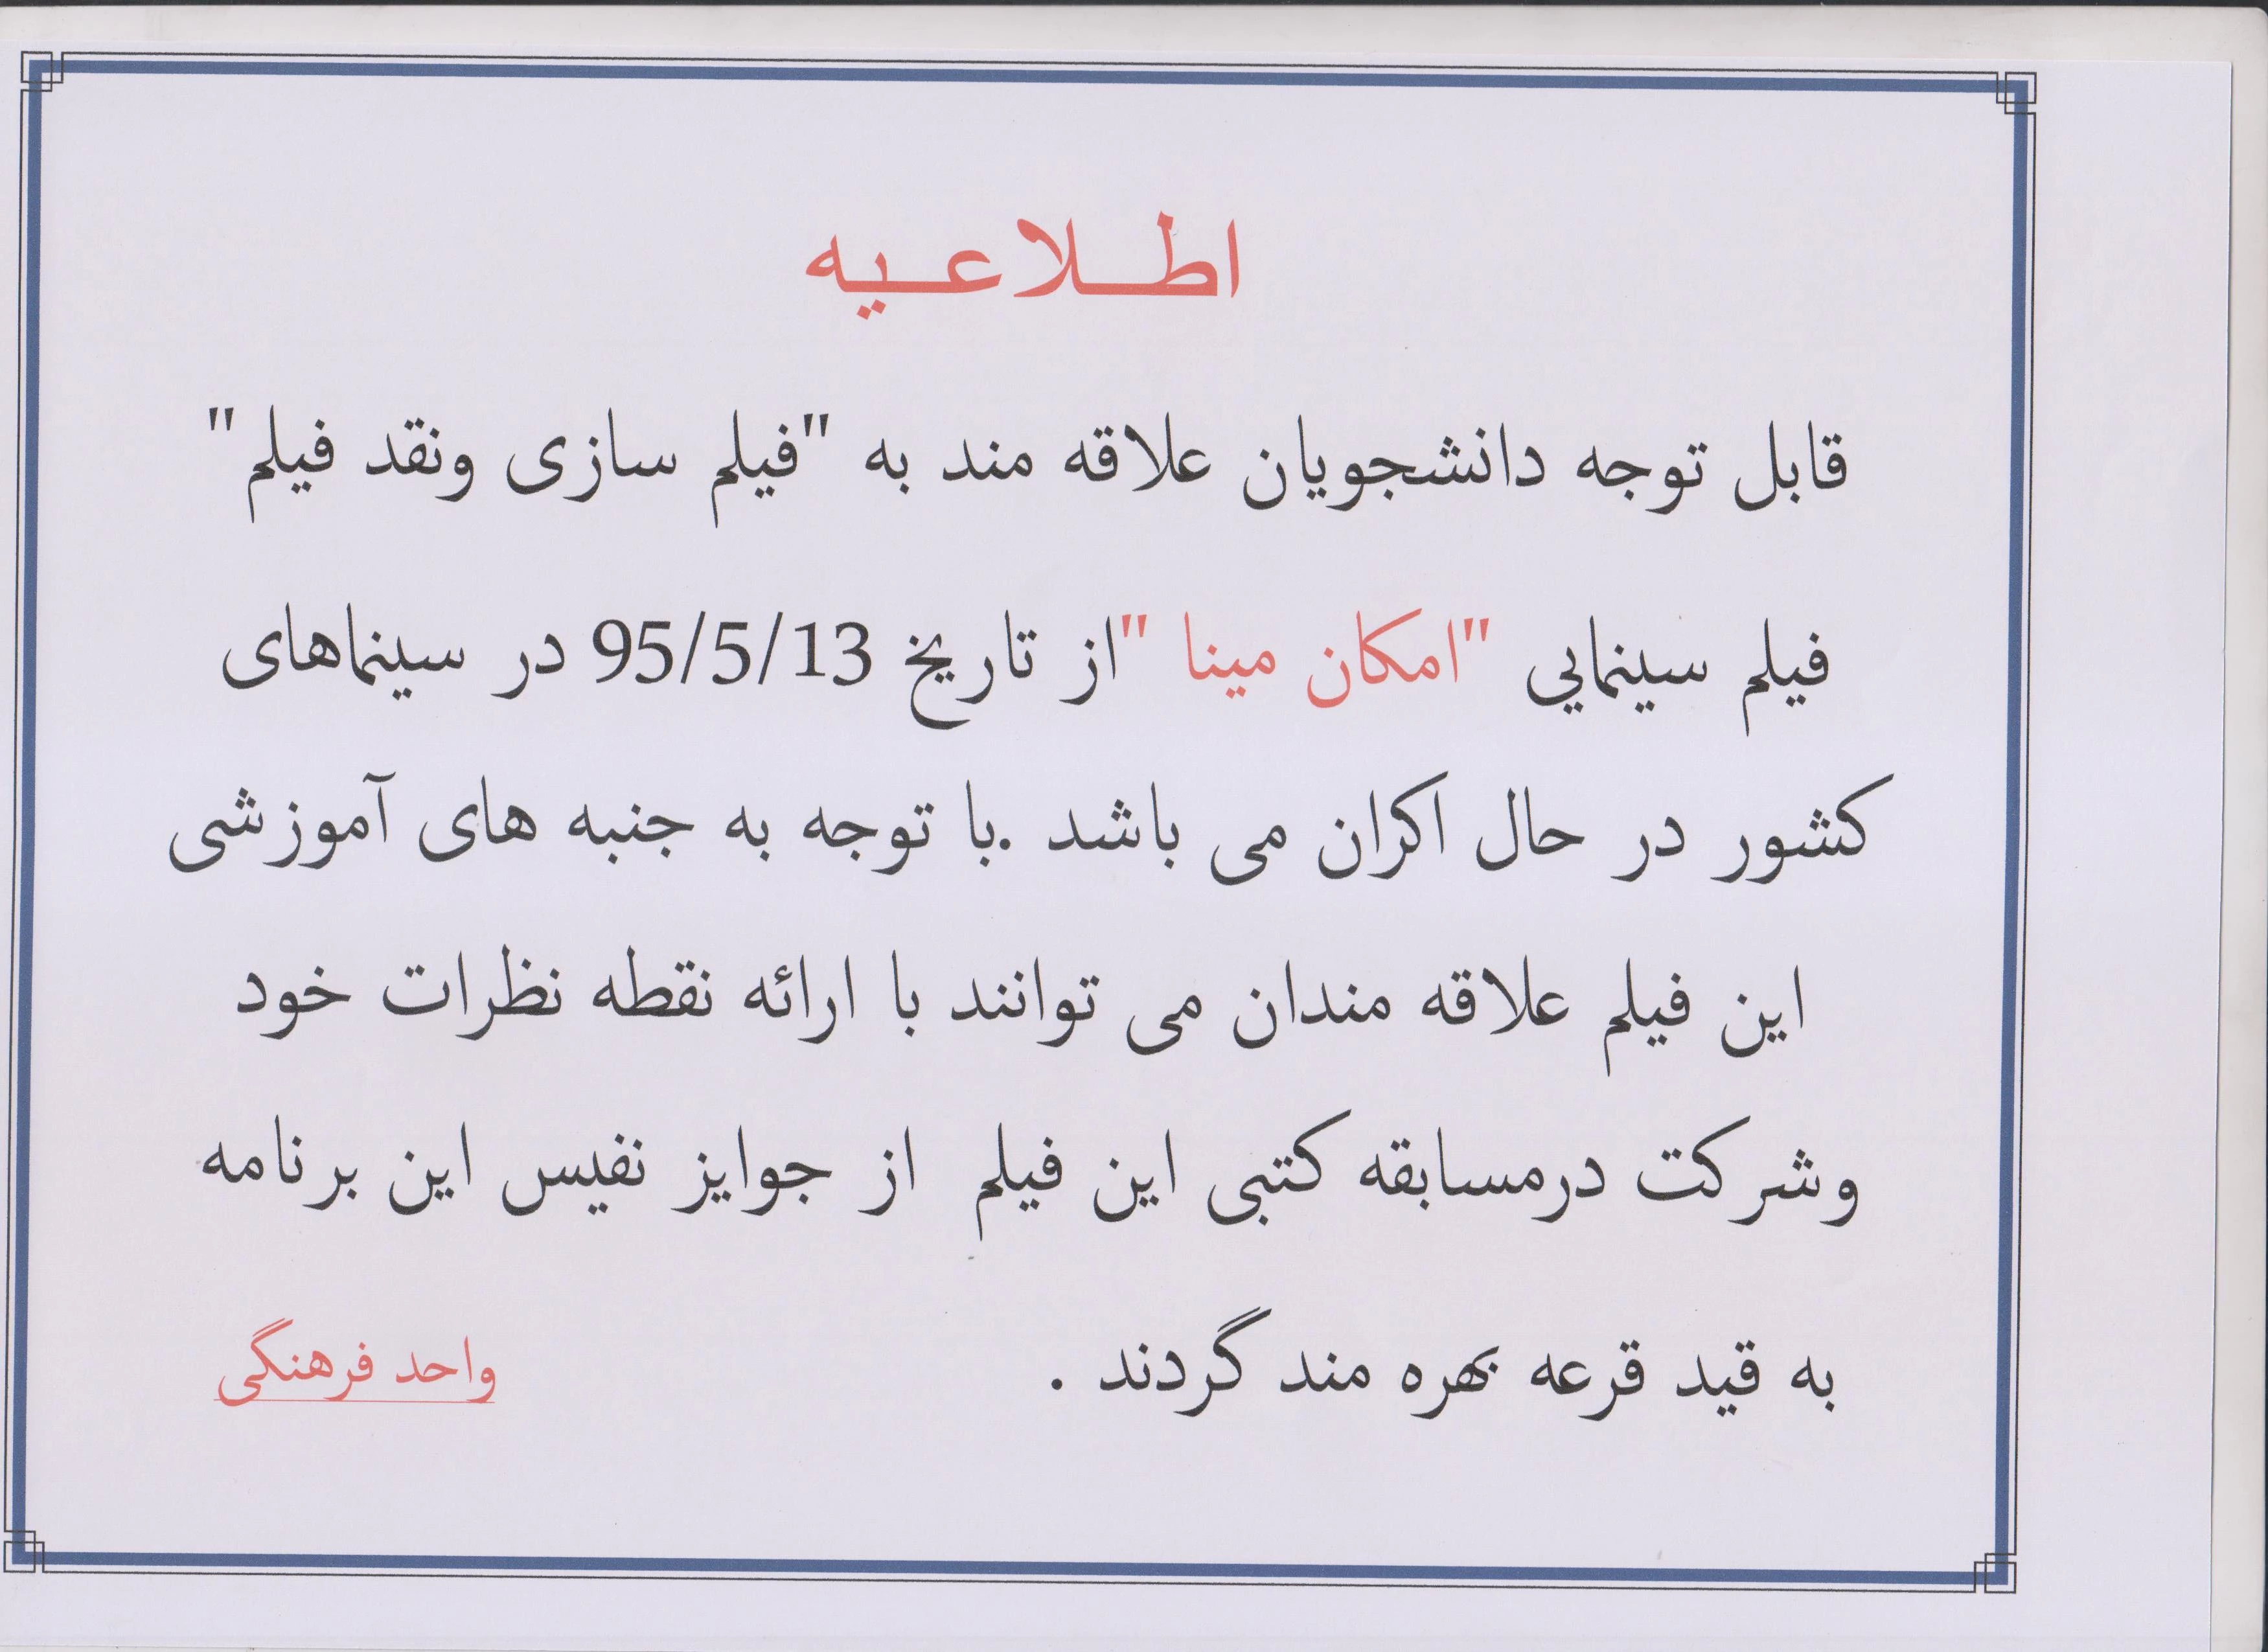 اطلاعیه
قابل توجه دانشجویان علاقه مند به "فیلم سازی ونقد فیلم"
فیلم سینمایی "امکان مینا "از تاریخ 95/5/13 در سینماهای
کشور در حال اکران می باشد .با توجه به جنبه های آموزشی
این فیلم علاقه مندان می توانند با ارائه نقطه نظرات خود
وشرکت درمسابقه کتبی این فیلم از جوایز نفیس این برنامه
به قید قرعه بهره مند گردند .
واحد فرهنگی